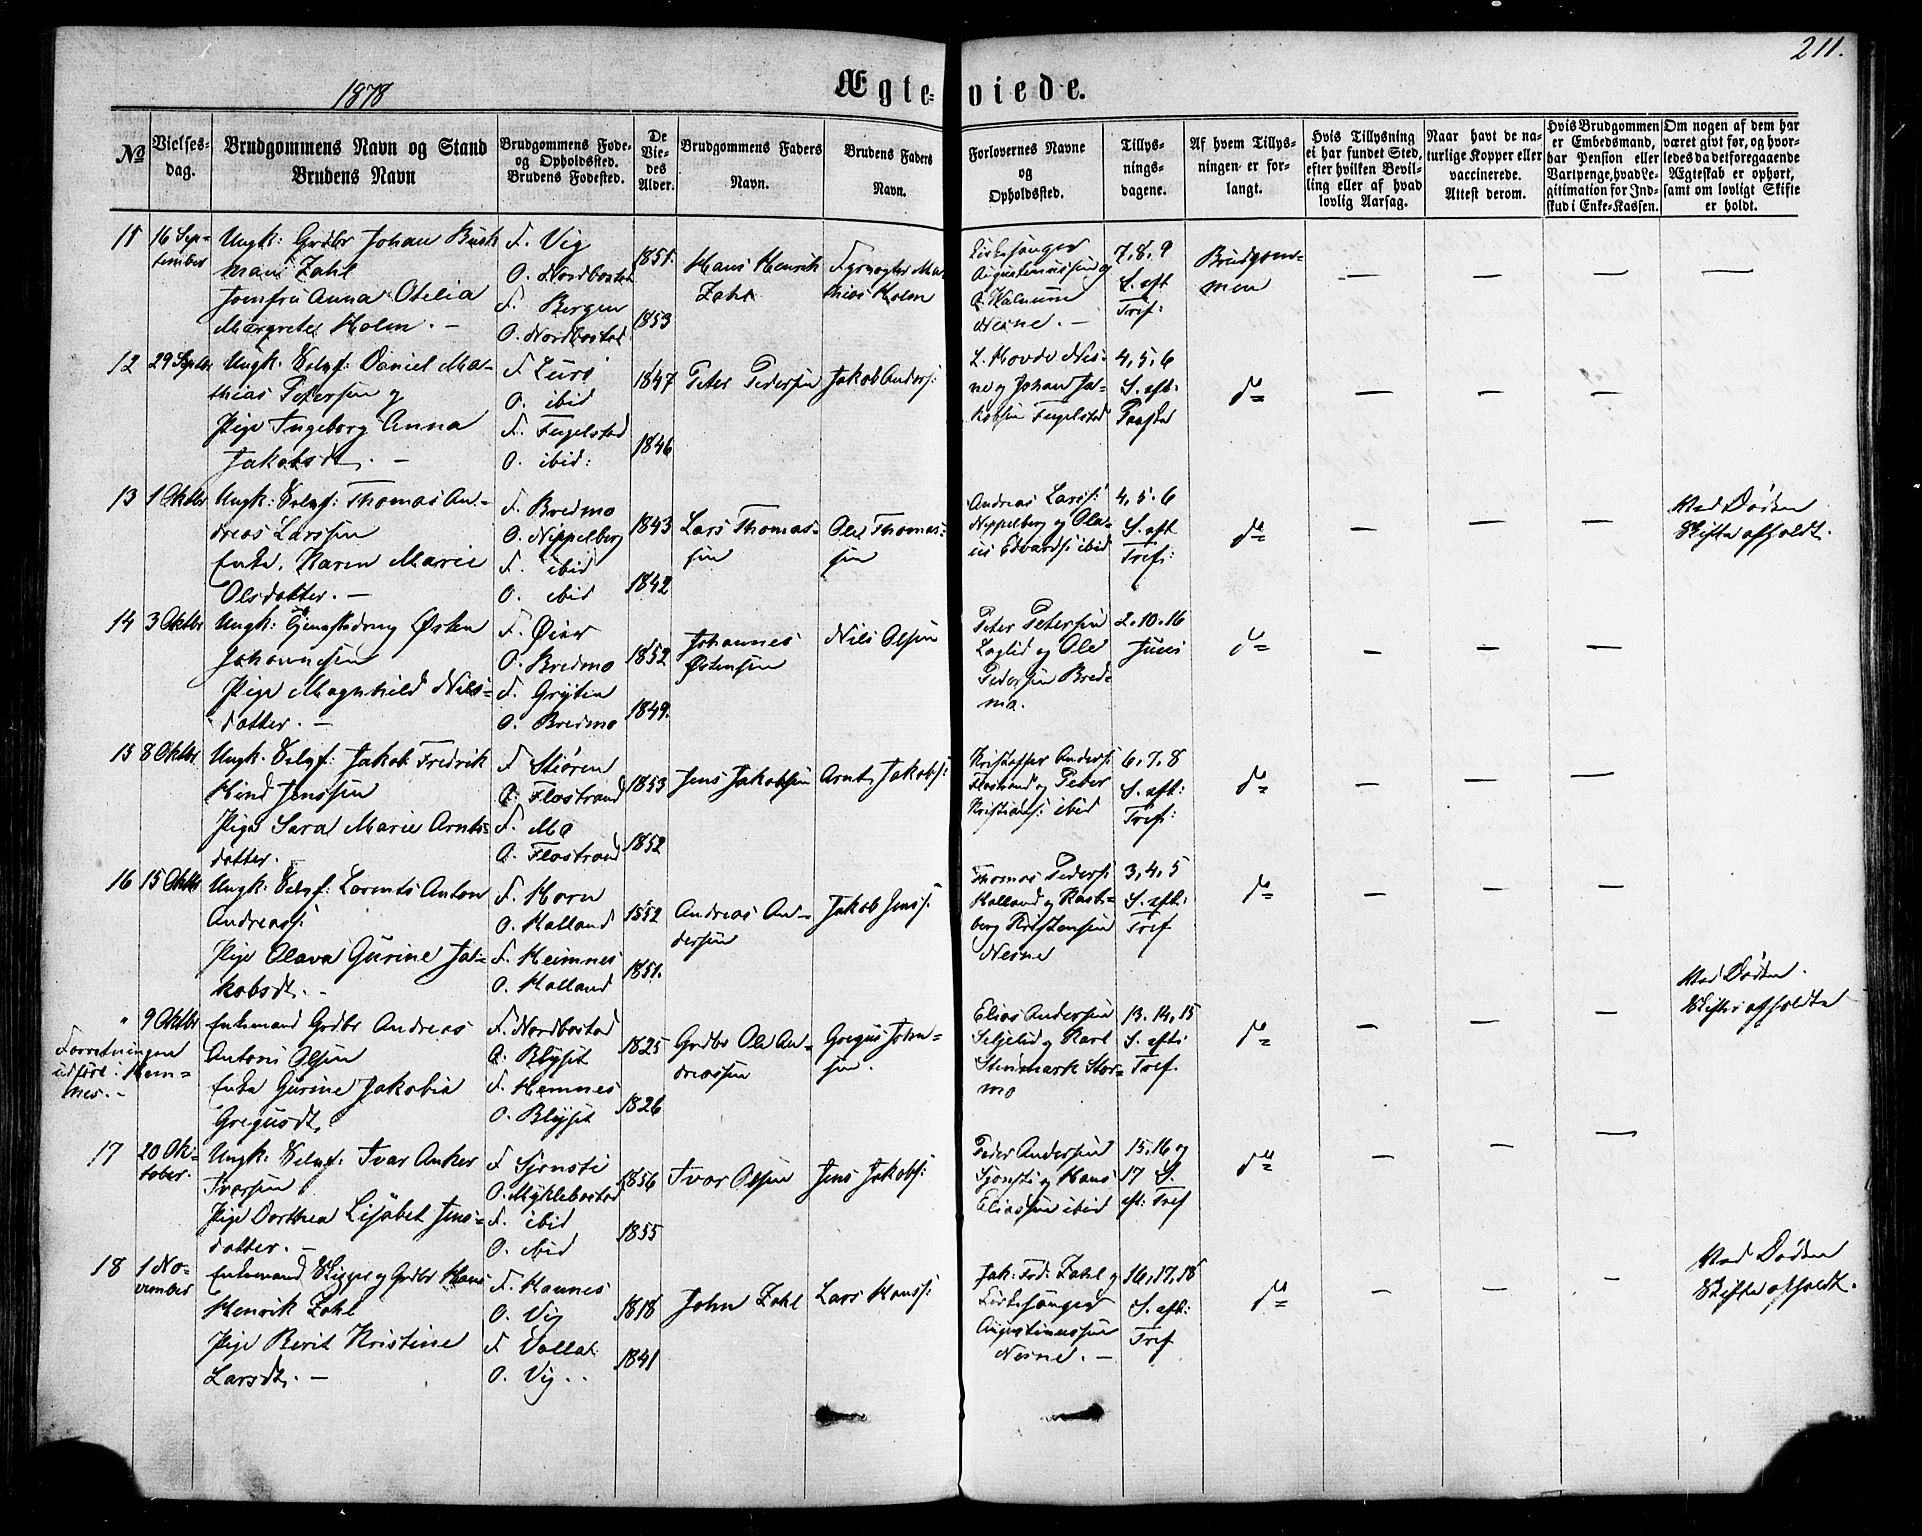 211.
1878
Ægte- viede.
No
Vielses-
dag.
Brudgommens Navn og Stand
Brudens Navn
Brudgommens Føde-
og Opholdssted.
Brudens Fødested.
De
Vie-
des
Alder.
Brudgommens Faders
Navn.
Brudens Faders
Navn.
Forlovernes Navne
og
Opholdssted.
Tillys-
nings-
dagene.
Af hvem Tillys-
ningen er for-
langt.
Hvis Tillysning
ei har fundet Sted,
efter hvilken Bevil-
ling eller af hvad
lovlig Aarsag.
Naar havt de na-
turlige Kopper eller
vaccinerede.
Attest derom.
Hvis Brudgommen
er Embedsmand,
har Pension eller
Vartpenge, hvad Le-
gitimation for Ind-
skud i Enke-Kassen.
Om nogen af dem har
været givt før, og hvor-
ledes da det foregaaende
Ægteskab er ophørt,
samt om lovligt Skifte
er holdt.
11
16 Sep-
tember
Ungk: Grdbr Johan
Zahl
Jomfru Anna Otelia
Margrete Holm. -
F. Vig
O. Nordbostad
F. Bergen
O. Nordbostad
1851.
1853
Hans Henrik
Zahl
Fyrvogter Ma-
thias Holm
Kirkesanger
Augustinussen og
Nesne. -
7, 8, 9
S. eft
Tref:
Brudgom-
men
— — — —
12
29 Septbr
Ungk: Selvf: Daniel Ma-
thias Petersen og
Pige Ingeborg Anna
Jakobsdt. -
F. Lurø
O. ibid
F. Fugelstad
O. ibid:
1847
1846
Peter Pedersen
Jakob Anders:
L. Hovde Nes-
ne og Johan Ja-
kobsen Fugelstad
4, 5, 6
S. eft:
Paaske
do
— — —
13
1 Oktbr
Ungk: Selvf: Thomas An-
dreas Larssen
Enke, Karen Marie
Olsdatter. -
F. Bredmo
O. Nippelberg
F. ibid
O. ibid
1843
1842
Lars Thomas-
sen
Ole Thomas-
sen
Andreas Larss:
Nippelberg og Ola-
us Edvards: ibid
4, 5, 6
S. eft
Tref:
do
— — —
Ved Døden
Skifte afholdt.
14
3 Oktbr
Ungk: Østen
Johannesen
Pige Magnhild Nils-
datter. -
F. Øier
O. Bredmo
F. Grytin
O. Bredmo
1852
1849.
Johannes
Østensen
Nils Olsen
Peter Petersen
og Ole
Pedersen Bred-
mo.
2. 10. 16
Juni
do
— — —
15
8 Oktbr
Ungk. Selvf: Jakob Fredrik
Hind Jenssen
Pige Sara Marie Arnts-
datter.
F. Støren
O. Flostrand
F. Mo
O. Flostrand
1853
1852
Jens Jakobsen
Arnt Jakobs:
Kristoffer Anders:
Flostrand og Peter
Kristians: ibid
6, 7, 8
S. eft:
Tref:
do
— — —
16
15 Oktbr
Ungk: Selvf: Lorents Anton
Andreass:
Pige Olava Gurine Ja-
kobsdt. -
F. Horn
O. Halland
F. Heimnes
O. Halland
1852
1851.
Andreas An-
dersen
Jakob Jenss:
Thomas Peders:
Halland og Rast-
berg Kristensen
Nesne
3, 4, 5
S. eft:
Tref
do
— — —
"
Forretningen
udført i Hem-
nes. -
9 Oktbr
Enkemand Grdbr Andreas
Antoni Olsen
Enke Gurine Jakobia
Gregusdt.
F. Nordbostad
O. Blyset
F. Hemnes
O. Blyset
1825
1826
Grdbr Ole An-
dreassen
Gregus John-
sen.
Elias Andersen
Seljelid og Karl
Stenmark Stor-
mo
13. 14, 15
S. eft:
Tref.
do
— — —
Ved Døden.
Skifter afholdte
17
20 Ok-
tober.
Ungk: Selvf: Ivar Anker
Ivarsen
Pige Dorthea Lisabet Jens-
datter. -
F. Sjonsti
O. Myklebostad
F. ibid
O. ibid
1856
1855
Ivar Olsen
Jens Jakobs:
Peder Andersen
Sjonsti og Hans
Eliassen ibid
15. 16 og
17 S.
eft: Tref
do
— — —
18
1 No-
vember
Enkemand Skipper og Grdbr Hans
Henrik Zahl
Pige Berit Kristine
Larsdt. -
F. Havnes
O. Vig
F. Valla
O. Vig..
1818
1841
John Zahl
Lars Hanss:
Jak: Fred: Zahl og
Kirkesanger
Augustinussen
Nesne. -
16, 17, 18
S. eft:
Tref
do
— — —
Ved Døden
Skifte afholdt.